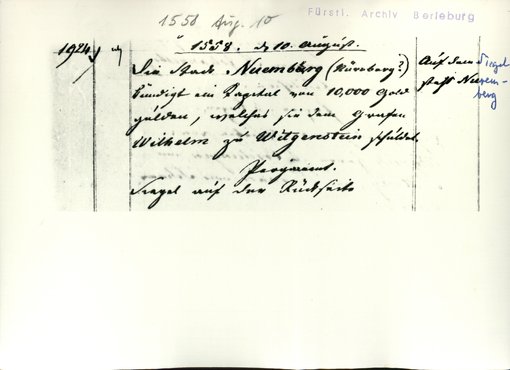 1558 Aug. 10
Fürstl. Archiv Berleburg
1924
1558. d 10. August.
Die Stadt Nuemberg (Nürnberg?)
kündigt ein Kapital von 10,000 Gold
gulden, welches sie dem Grafen
Wilhelm zu Witgenstein schuldet.
Pergament.
Siegel auf der Rückseite
Auf dem Siegel
steht Nurem-
berg